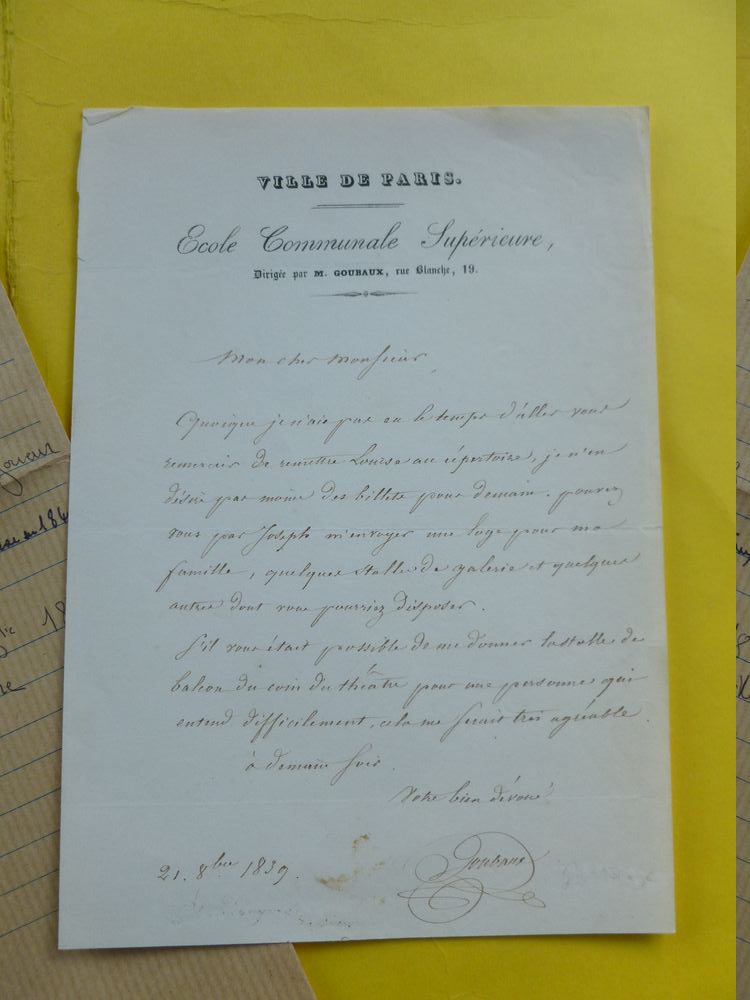 VILLE DE PARIS.
Ecole Communale Supérieure,
Dirigée par M. GOUBAUX, rue Blanche, 19.
Mon cher Monsieur,
Quoique je n'aie pas eu le temps d'aller vous
remercier de remettre Louise au répertoire, je n'en
désire pas moins des billets pour demain. pouvez
vous par Joseph m'envoyer une loge pour ma
famille, quelques stalles de galerie et quelques
autres dont vous pourriez disposer.
S'il vous était possible de me donner la stalle de
balcon du coin du théâtre pour une personne qui
entend difficilement, cela me serait très agréable.
à demain soir.
Votre bien dévoué
Goubaux
21. 8bre 1839.
18